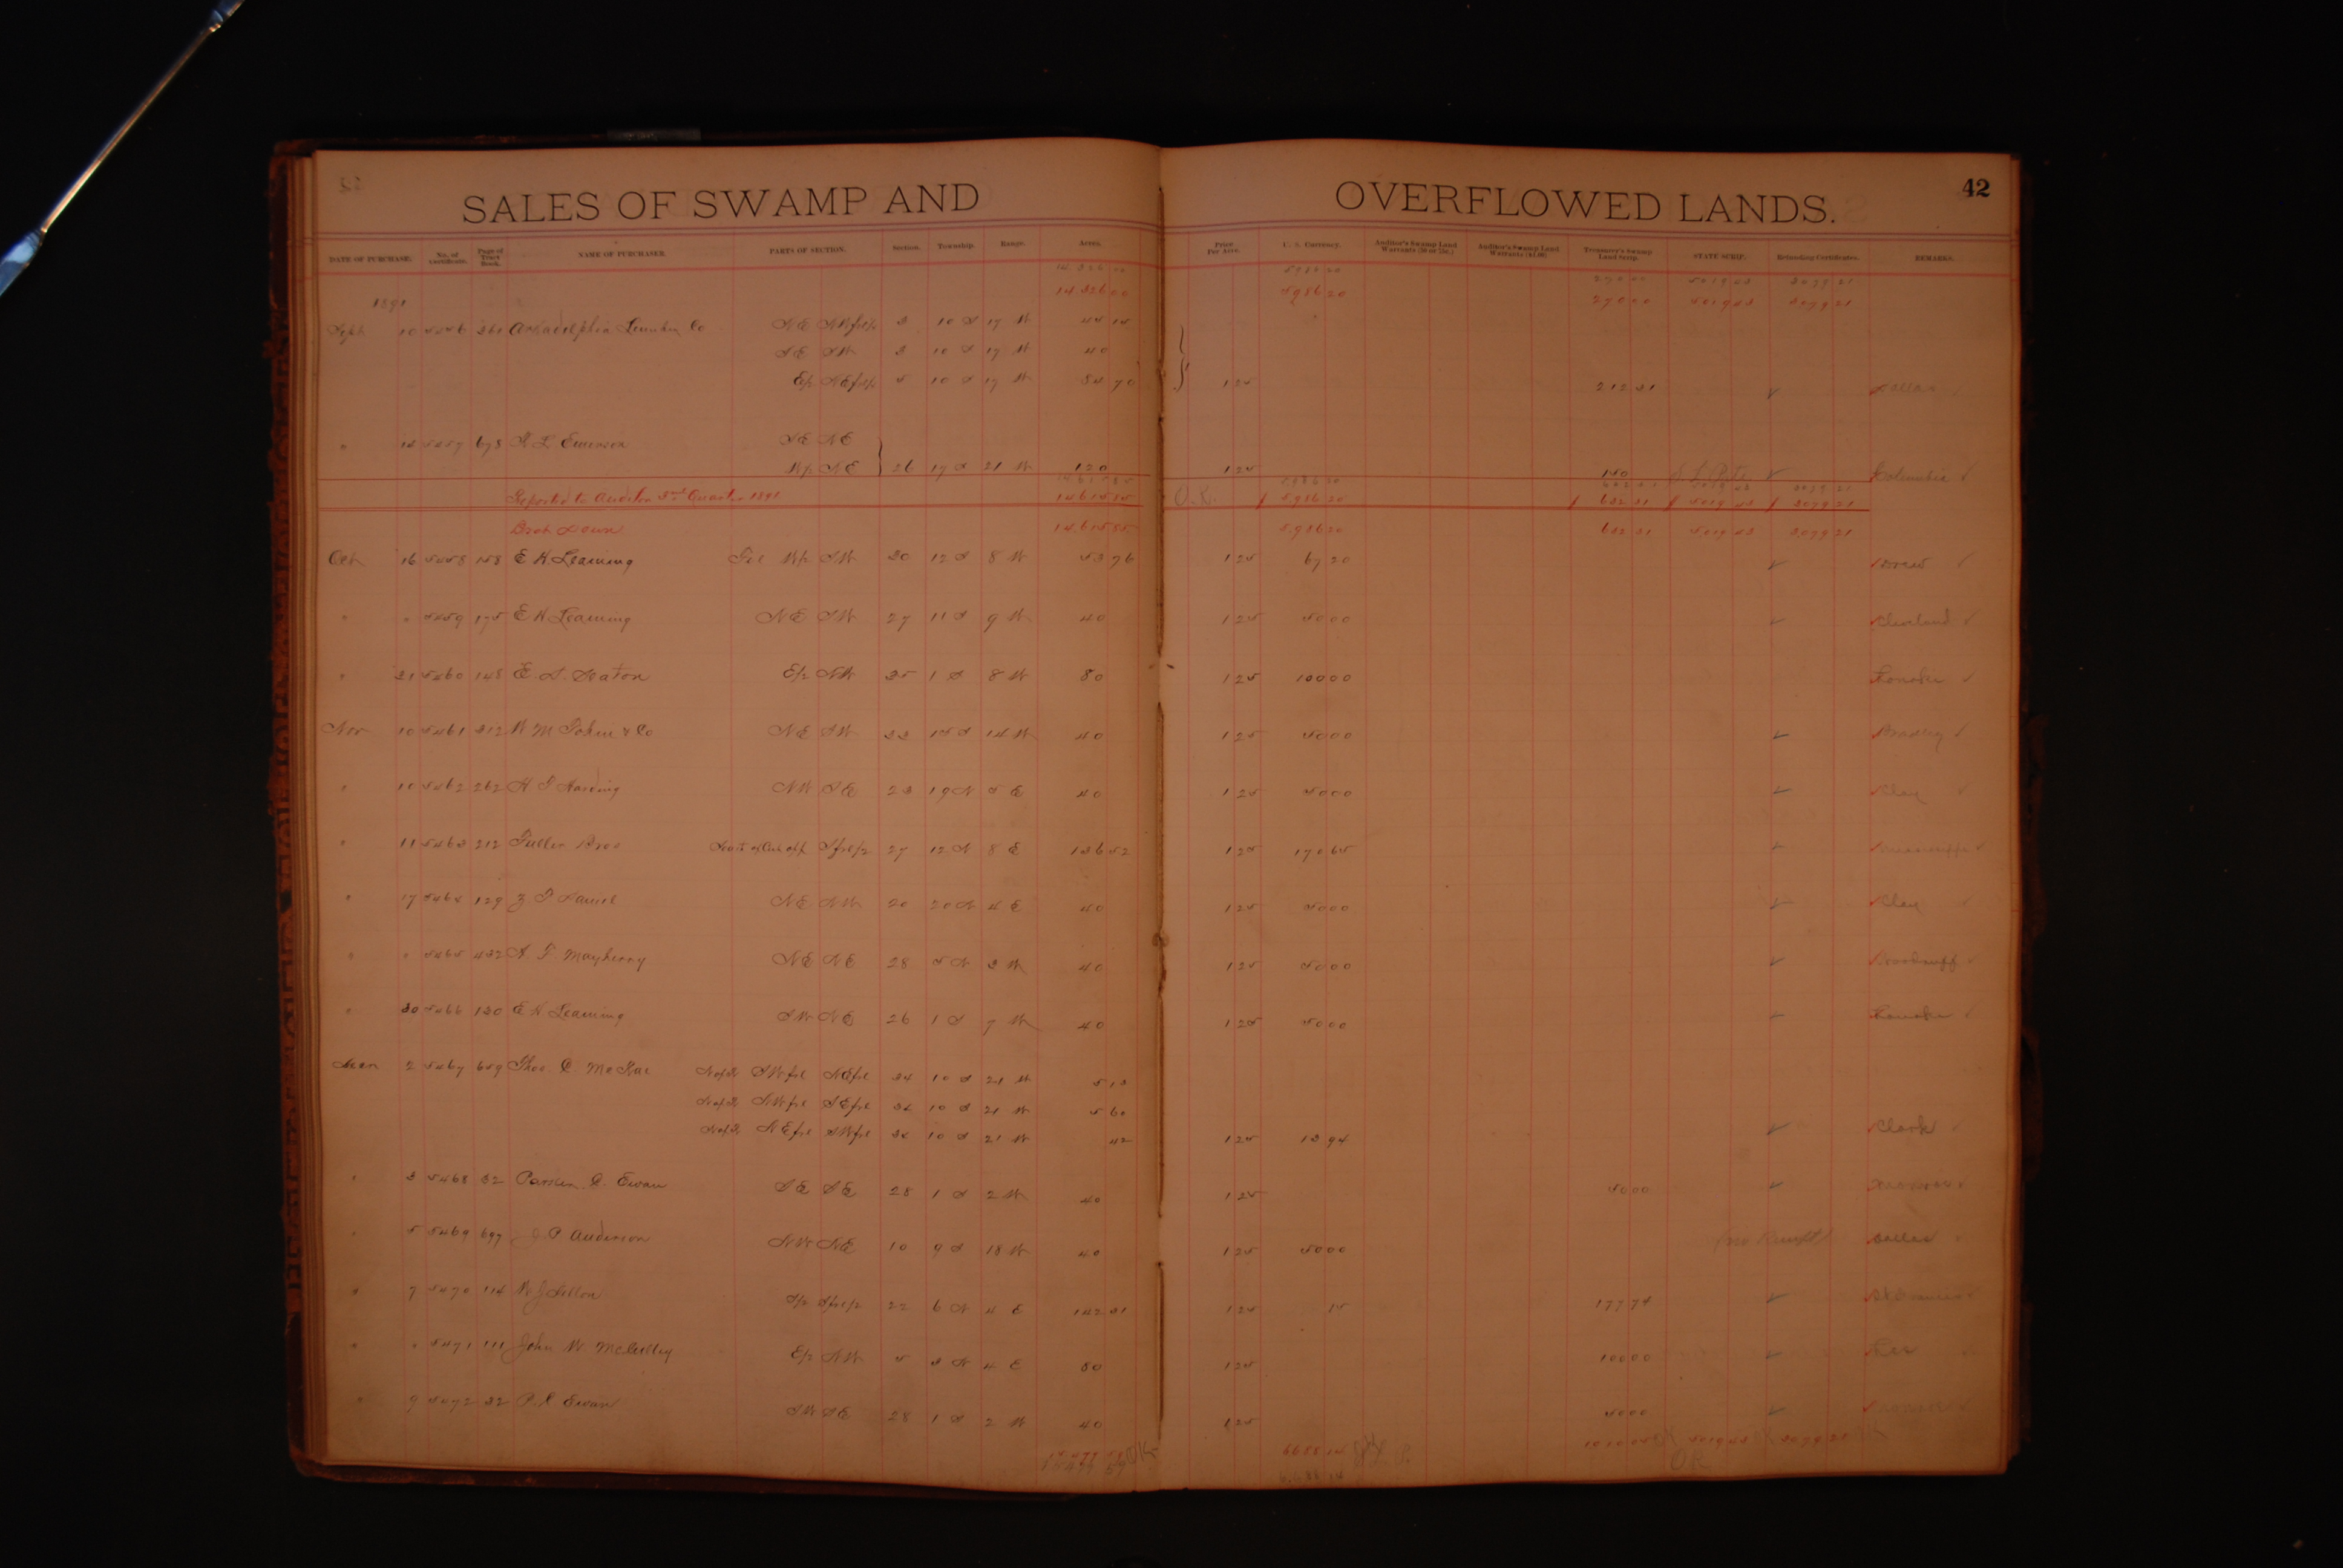 42
SALES OF SWAMP AND OVERFLOWED LANDS.
DATE OF PURCHASE. No. of Certificate. Page of Tract Book. NAME OF PURCHASER. PARTS OF SECTION. Section. Township. Range. Acres. Price Per Acre. U. S. Currency. Auditor's Swamp Land Warrants (50 or 75c.) Auditor's Swamp Land Warrants ($1.00) Treasurer's Swamp Land Scrip. STATE SCRIP. Refunding Certificates. REMARKS.
14 326 00 5986 20 270 00 5019 43 3079 21
1891 14 326 00 5986 20 270 00 5019 43 3079 21
Sept 10 5456 361 Arkadelphia Lumber Co NE NWfrl 3 10 S 17 W 45 15
SE SW 3 10 S 17 W 40
E/2 NEfrl/2 5 10 S 17 W 84 70 1 25 212 31 Dallas
" 14 5457 678 Emerson SE NE
W/2 NE 26 17 S 21 W 120 1 25 150 Columbia
Reported to Auditor 3rd Quarter 1891 14 615 85 O.K. 5986 20 632 31 5019 43 3079 21
Brot Down 14,615 85 5,986 20 632 31 5,019 43 3,079 21
Oct 16 5458 158 E H Leaming Frl W/2 SW 30 12 S 8 W 53 76 1 25 67 20 Drew
" " 5459 175 E H Leaming NE SW 27 11 S 9 W 40 1 25 50 00 Cleveland
" 31 5460 148 E. S. Seaton E/2 NW 35 1 S 8 W 80 1 25 100 00 Lonoke
Nov 10 5461 312 W M & Co NE SW 33 15 S 14 W 40 1 25 50 00 Bradley
" 11 5462 262 H Harding NW SE 23 19 N 5 E 40 1 25 50 00 Clay
" 11 5463 212 Fuller Bros Sfrl/2 27 12 N 8 E 136 52 1 25 170 65 Mississippi
" 17 5464 129 Daniel NE NW 20 20 N 4 E 40 1 25 50 00 Clay
" " 5465 432 Mayberry NE NE 28 5 N 3 W 40 1 25 50 00 Woodruff
" 30 5466 130 E H Leaming SW NE 26 1 S 7 W 40 1 25 50 00 Lonoke
Decem 2 5467 659 Thos C McRae N of R SWfrl NEfrl 34 10 S 21 W 5 13
S of R NWfrl SEfrl 34 10 S 21 W 5 60
N of R NEfrl SWfrl 34 10 S 21 W 42 1 25 13 94 Clark
" 3 5468 32 Parker C. Ewan SE SE 28 1 S 2 W 40 1 25 50 00 Monroe
" 5 5469 697 J P Anderson NW NE 10 9 S 18 W 40 1 25 50 00 (no Receipt) Dallas
" 7 5470 114 S/2 Sfrl/2 22 6 N 4 E 142 31 1 25 15 177 74 St Francis
" " 5471 111 John W McCulley E/2 NW 5 3 N 4 E 80 1 25 100 00 Lee
" 9 5472 32 P. C Ewan SW SE 28 1 S 2 W 40 1 25 50 00 Monroe
OK 6688 14 1010 05 5019 43 3079 21
OK